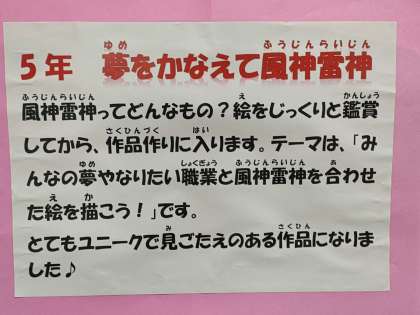 ５年　夢をかなえて風神雷神
風神雷神ってどんなもの？絵をじっくりと鑑賞
してから、作品作りに入ります。テーマは、「み
んなの夢やなりたい職業と風神雷神を合わせ
た絵を描こう！」です。
とてもユニークで見ごたえのある作品になりま
した♪